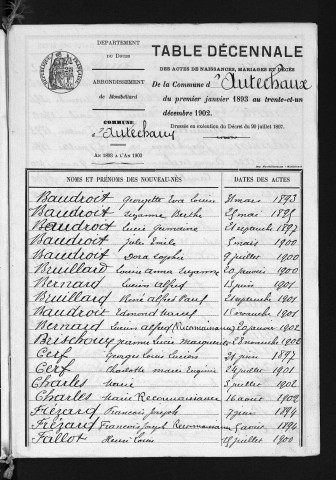 DÉPARTEMENT
du Doubs
ARRONDISSEMENT
de Montbéliard
COMMUNE
d'Autechaux
AN 1893 A L'AN 1902
TABLE DÉCENNALE
DES ACTES DE NAISSANCES, MARIAGES ET DÉCÈS
De la Commune d'Autechaux
du premier janvier 1893 au trente-et-un
décembre 1902.
Dressée en exécution du Décret du 20 juillet 1807.
NOMS ET PRÉNOMS DES NOUVEAU-NÉS DATES DES ACTES
Baudroit Georgette Eva Louise 31 mars 1893
Baudroit Suzanne Berthe 25 mai 1895
Baudroit Lucie Germaine 21 septembre 1897
Baudroit Jules Emile 5 mars 1900
Baudroit Dora Sophie 9 juillet 1900
Bruillard Louise Anna Suzanne 20 janvier 1900
Bernard Lucien Alfred 13 juin 1901
Bruillard René Alfred Paul 21 septembre 1901
Baudroit Edmond Marcel 15 novembre 1901
Bernard Lucien Alfred Reconnaissance 20 janvier 1902
Jeanne Lucie Marguerite 28 novembre 1902
Cerf Georges Louis Lucien 21 juin 1897
Cerf Charlotte Marie Eugénie 24 juillet 1901
Charles Marie 3 juillet 1902
Charles Marie Reconnaissance 16 août 1902
Frézard François Joseph 7 janvier 1894
Frézard François Joseph Reconnaissance 5 avril 1894
Fallot Henri Louis 15 juillet 1900